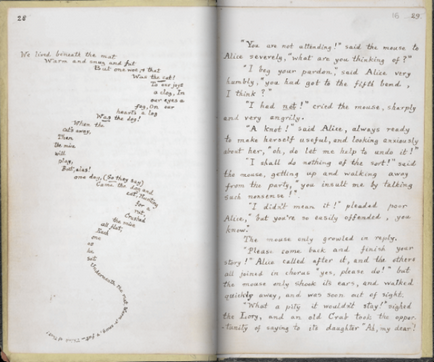 28
We lived beneath the mat
Warm and snug and fat
But one woe, & that
Was the cat!
To our joys
a clog, In
our eyes a
fog, On our
hearts a log
Was the dog!
When the
cat's away,
Then
the mice
will
play,
But, alas!
one day, (So they say)
Came the dog and
cat, Hunting
for a
rat,
Crushed
the mice
all flat,
Each
one
as
he
sat
Underneath the mat, Warm & snug & fat Think of that!
29
"You are not attending!" said the mouse to
Alice severely, "what are you thinking of?"
"I beg your pardon," said Alice very
humbly, "you had got to the fifth bend,
I think?"
"I had not!" cried the mouse, sharply
and very angrily.
"A knot!" said Alice, always ready
to make herself useful, and looking anxiously
about her, "oh, do let me help to undo it!"
"I shall do nothing of the sort!" said
the mouse, getting up and walking away
from the party, "you insult me by talking
such nonsense!"
"I didn't mean it!" pleaded poor
Alice, "but you're so easily offended, you
know."
The mouse only growled in reply.
"Please come back and finish your
story!" Alice called after it, and the others
all joined in chorus "yes, please do!" but
the mouse only shook its ears, and walked
quickly away, and was soon out of sight.
"What a pity it wouldn't stay!" sighed
the Lory, and an old Crab took the oppor-
-tunity of saying to its daughter "Ah, my dear!